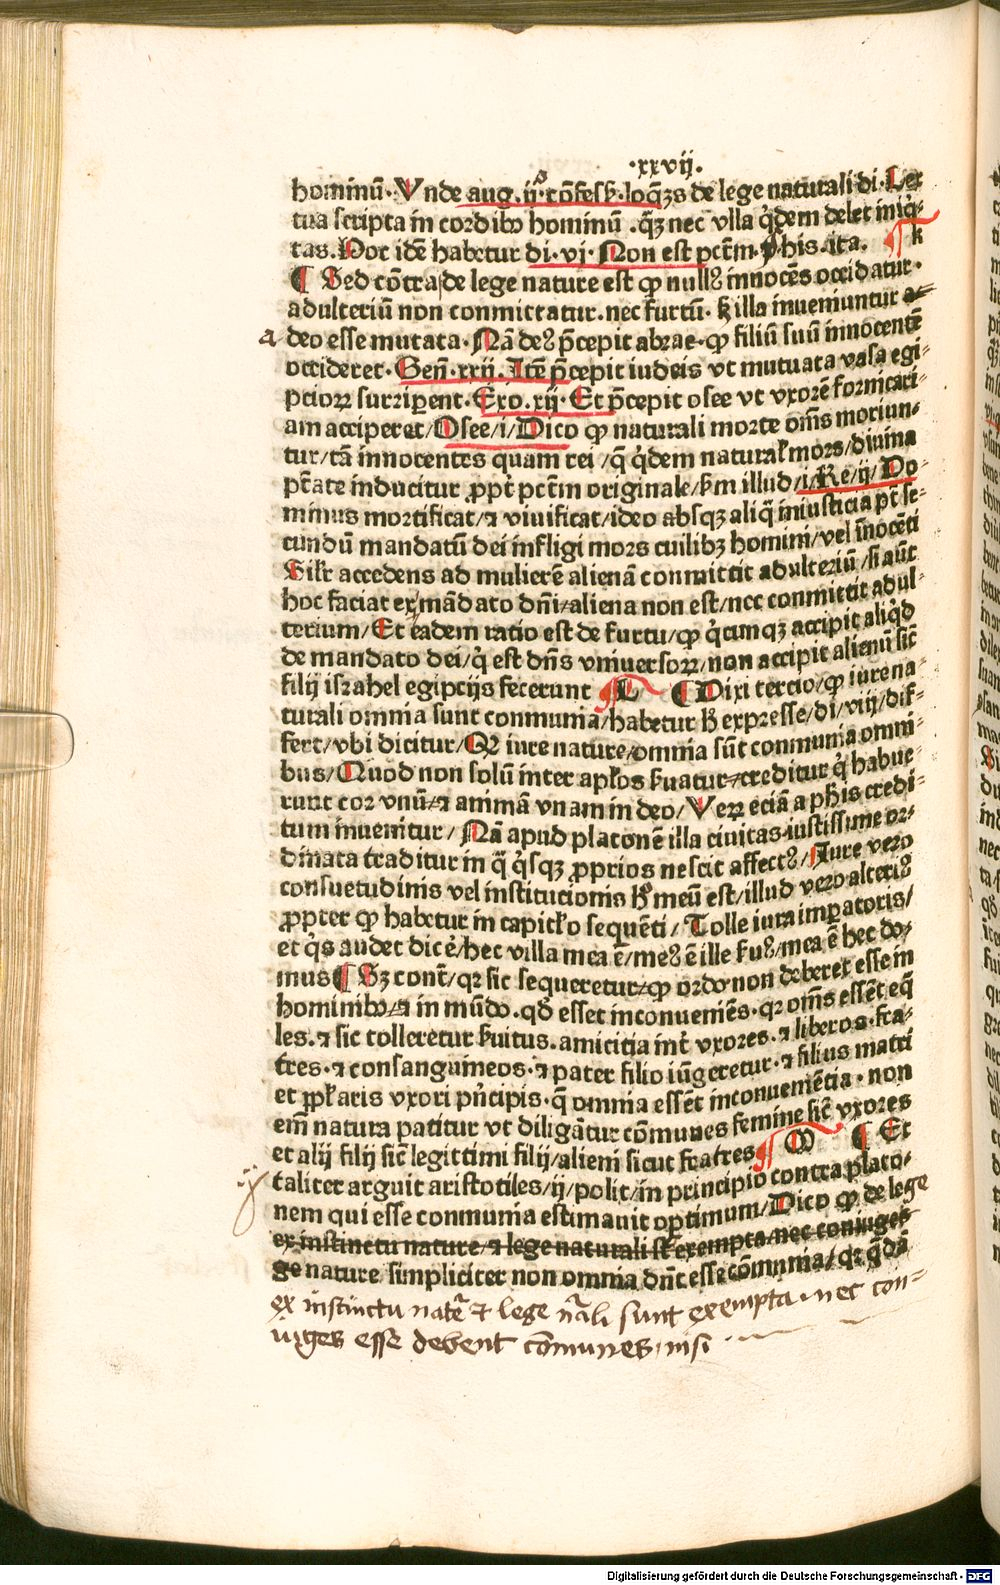 ·xxvij.
hominū· Vnde aug. ij.° cōfess. loq̄ꝫs de lege naturali di. Lex
tua scripta in cordibꝫ hominū . q̄ꝫ nec vlla q̇dem delet iniq̇-
tas. Hoc idē habetur di· vj· Non est pctm̄. phis. ita. k
¶ Sed cōtra de lege nature est ꝙ nullꝰ innocēs occidatur·
adulteriū non conmittatur. nec furtū. s̄ illa inueniuntur a-
a deo esse mutata· Nā deꝰ p̄cepit abrae· ꝙ filiū suū innocentē
occideret· Gen̄· xxij. Itē p̄cepit iudeis vt mutuata vasa egi-
ptioꝝ surriperent· Exo. xij· Et p̄cepit osee vt vxorē fornicari-
am acciperet/ Osee/i/ Dico ꝙ naturali morte oms̄ moriun-
tur/ tā innocentes quam rei /q̄ q̇dem naturał mors/ diuina
ptāte inducitur ꝓpt̄ pctm̄ originale/ sm̄ illud/i/Re/ij/ Do-
minus mortificat/ ⁊ viuificat/ ideo absqꝫ aliq̄ iniusticia pt̄ se-
cundū mandatū dei infligi mors cuilibꝫ homini/ vel īnocēti
Silr̄ accedens ad mulierē alienā conmittit adulteriū /si aūt
hoc faciat ex mādato dn̄i/ aliena non est/ nec conmittit adul-
terium/ Et eadem ratio est de furtu/ ꝙ q̇cunqꝫ accipit aliq̇d
de mandato dei/ q̇ est dn̄s vniuersoꝝ/ non accipit alienū sic̄
filij israhel egipcijs fecerunt L ¶ Dixi tercio/ ꝙ iure na-
turali omnia sunt conmunia/ habetur h̄ expresse/ di/ viij/ dif-
fert/ vbi dicitur/ Qꝛ iure nature/ omnia sūt conmunia omni-
bus/ Quod non solū inter apłos s̄uatur/ creditur q̇ habue-
runt cor vnū/ ⁊ animā vnam in deo/ Veꝝ eciā a phis credi-
tum inuenitur / Nā apud platonē illa ciuitas iustissime or-
dinata traditur in q̄ q̇sqꝫ ꝓprios nescit affectꝰ/ Iure vero
consuetudinis vel institucionis h° meū est/ illud vero alteriꝰ
ꝓpter ꝙ habetur in capitło sequēti/ Tolle iura imperatoris/
et q̇s audet dicē/ hec villa mea ē/ meꝰ ē ille s̄uꝰ/ mea ē hec do-
mus ¶ Sꝫ cont̄/ qꝛ sic sequeretur/ ꝙ ordo non deberet esse in
hominibꝫ/ ⁊ in mūdo. qd̄ esset inconueniēs· qꝛ oms̄ essēt eq̄
les. ⁊ sic tolleretur s̄uitus. amicitia int̄ vxores. ⁊ liberos. fra-
tres· ⁊ consanguineos· ⁊ pater filio iūgeretur· ⁊ filius matri
et ppłaris vxori pn̄cipis· q̄ omnia essēt inconueniētia· non
em̄ natura patitur vt diligātur cōmunes femine sic̄ vxores
et alij filij sic̄ legittimi filij/ alieni sicut fratres M ¶ Et
ij taliter arguit aristotiles/ ij/ polit/ in principio contra plato-
nem qui esse conmunia estimauit optimum/ Dico ꝙ de lege
ex instinctu nature/ ⁊ lege naturali st̄ exempta/ nec coniuges
ge nature simpliciter non omnia dn̄t esse cōmunia/ qꝛ q̄dā
ex instinctu natē ⁊ lege nāli sunt exempta. nec con-
iuges esse debent cōmunes, nisi
Digitalisierung gefördert durch die Deutsche Forschungsgemeinschaft - DFG